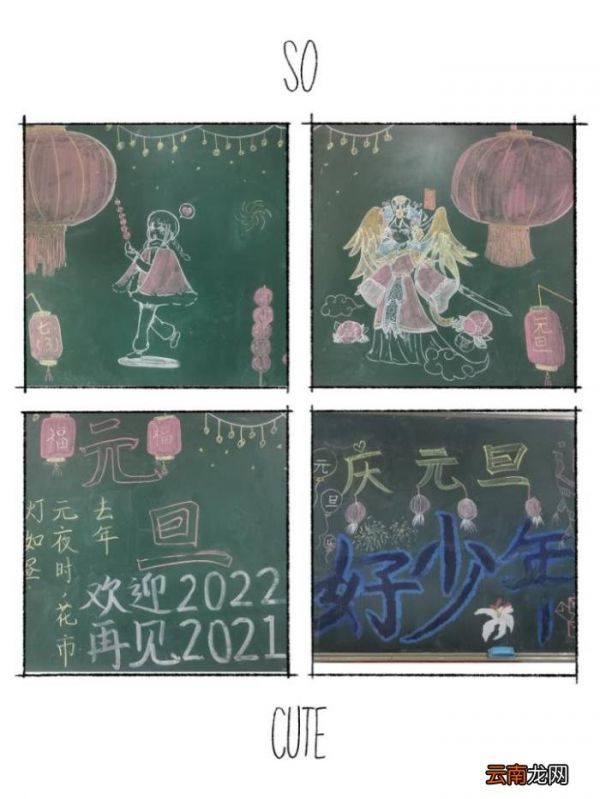 SO
七(3)
元旦
福
福
元旦
去年
元夜时，花市
灯如昼
欢迎2022
再见2021
庆元旦
元旦
好少年
CUTE
云南龙网